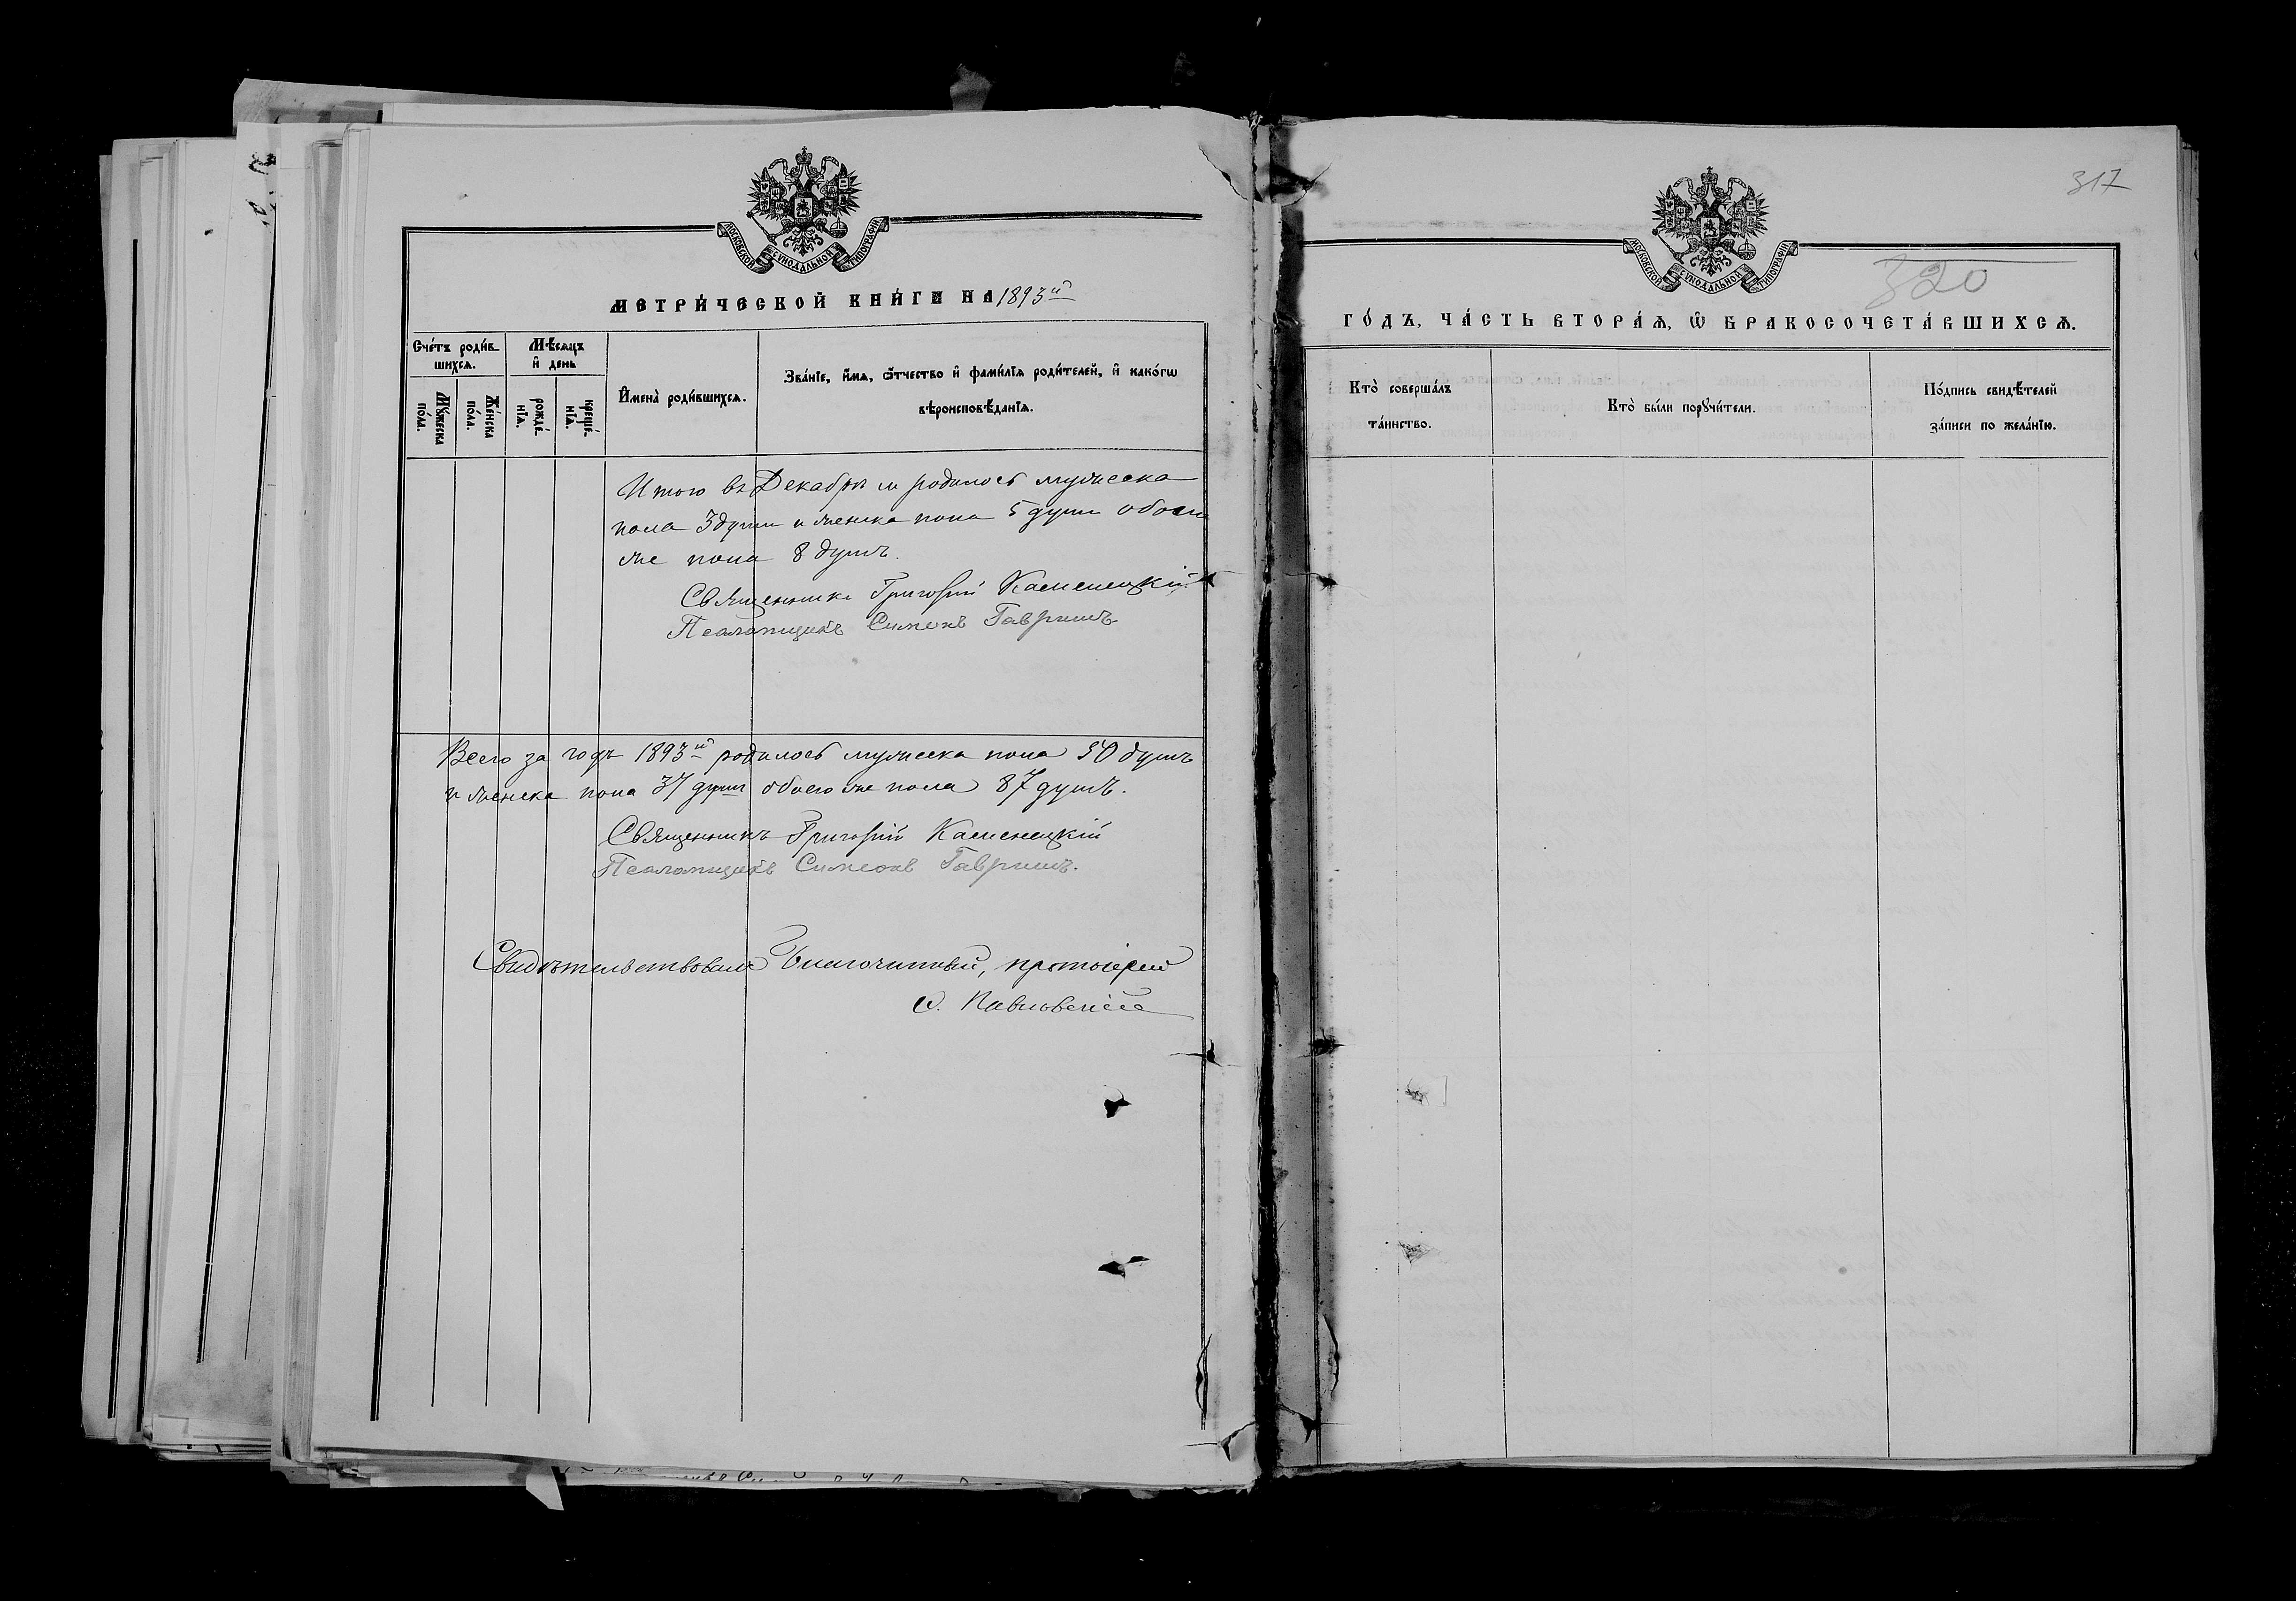 МОСКОВСКОЙ СѴНОДАЛЬНОЙ ТИПОГРАФІИ
МЕТРИ́ЧЕСКОЙ КНИ́ГИ НА 1893й
Сче́тъ роди́в-
шихсѧ.
Мѹ́жеска
по́ла.
Же́нска
по́ла.
Мѣ́сѧцъ
и҆ день
рожде́-
нїѧ.
креще́-
нїѧ.
И҆мена̀ роди́вшихсѧ.
Зва́нїе, и҆́мѧ, ѻ҆́тчество и҆ фами́лїѧ роди́телей, и҆ како́гѡ
вѣроисповѣ́данїѧ.
Итого въ Декабрѣ м родилось мужеска
пола 3 души и женска пола 5 душъ обоего
же пола 8 душъ.
Священникъ Григорій Каменецкій
Псаломщикъ Симеонъ Гавришъ
Всего за годъ 1893й родилось мужеска пола 50 душъ
и женска пола 37 душъ обоего же пола 87 душъ.
Священникъ Григорій Каменецкій
Псаломщикъ Симеонъ Гавришъ.
Свидѣтельствовалъ Благочинный, протоіерей
Павловскій
317
МОСКОВСКОЙ СѴНОДАЛЬНОЙ ТИПОГРАФІИ
320
ГО́ДЪ, ЧА́СТЬ ВТОРА́Ѧ, Ѡ҆ БРАКОСОЧЕТА́ВШИХСѦ.
Кто̀ соверша́лъ
та́инство.
Кто̀ бы́ли порꙋчи́тели.
По́дпись свидѣ́телей
за́писи по жела́нїю.